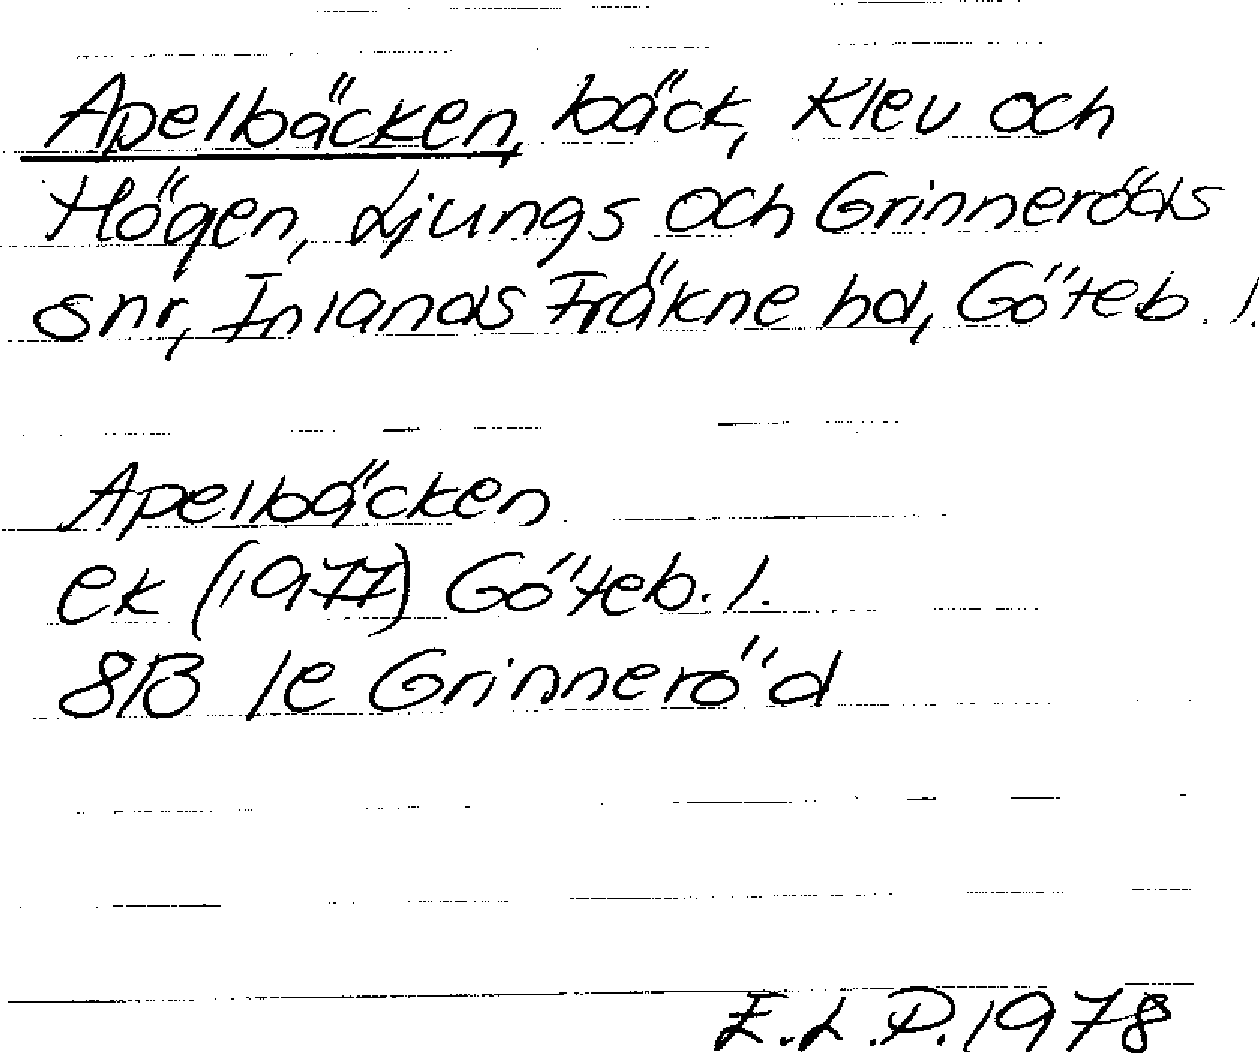 Apelbäcken, bäck, Klev och
Högen, Ljungs och Grinneröds
snr, Inlands Fräkne hd, Göteb. l.
Apelbäcken
ek (1977) Göteb. l.
8B 1e Grinneröd
E.L.P. 1978